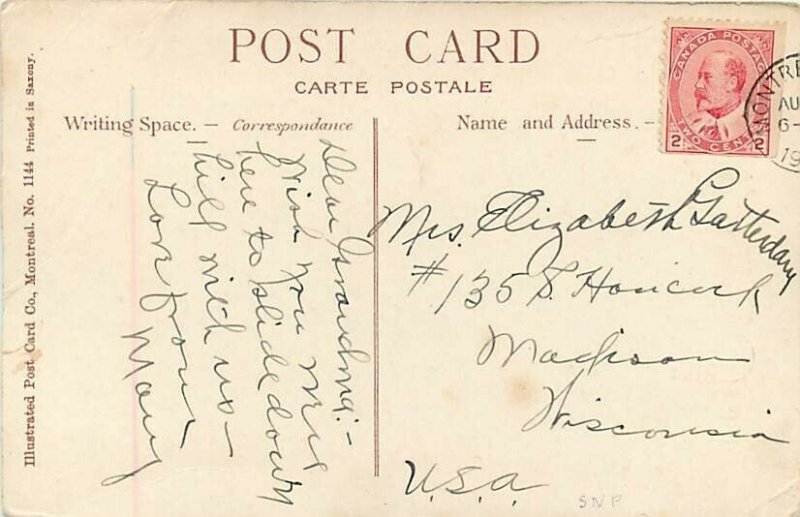 POST CARD
CARTE POSTALE
Writing Space. — Correspondance
Name and Address. —
CANADA POSTAGE
2 TWO CENTS 2
MONTRE
AU
6-
19
Dear Grandma:-
Wish you were
here to slide down
hill with us—
Love from
Mary
Mrs. Elizabeth
#135 S. Hancock
Madison
Wisconsin
U.S.A.
SNP
Illustrated Post Card Co., Montreal. No. 1144 Printed in Saxony.